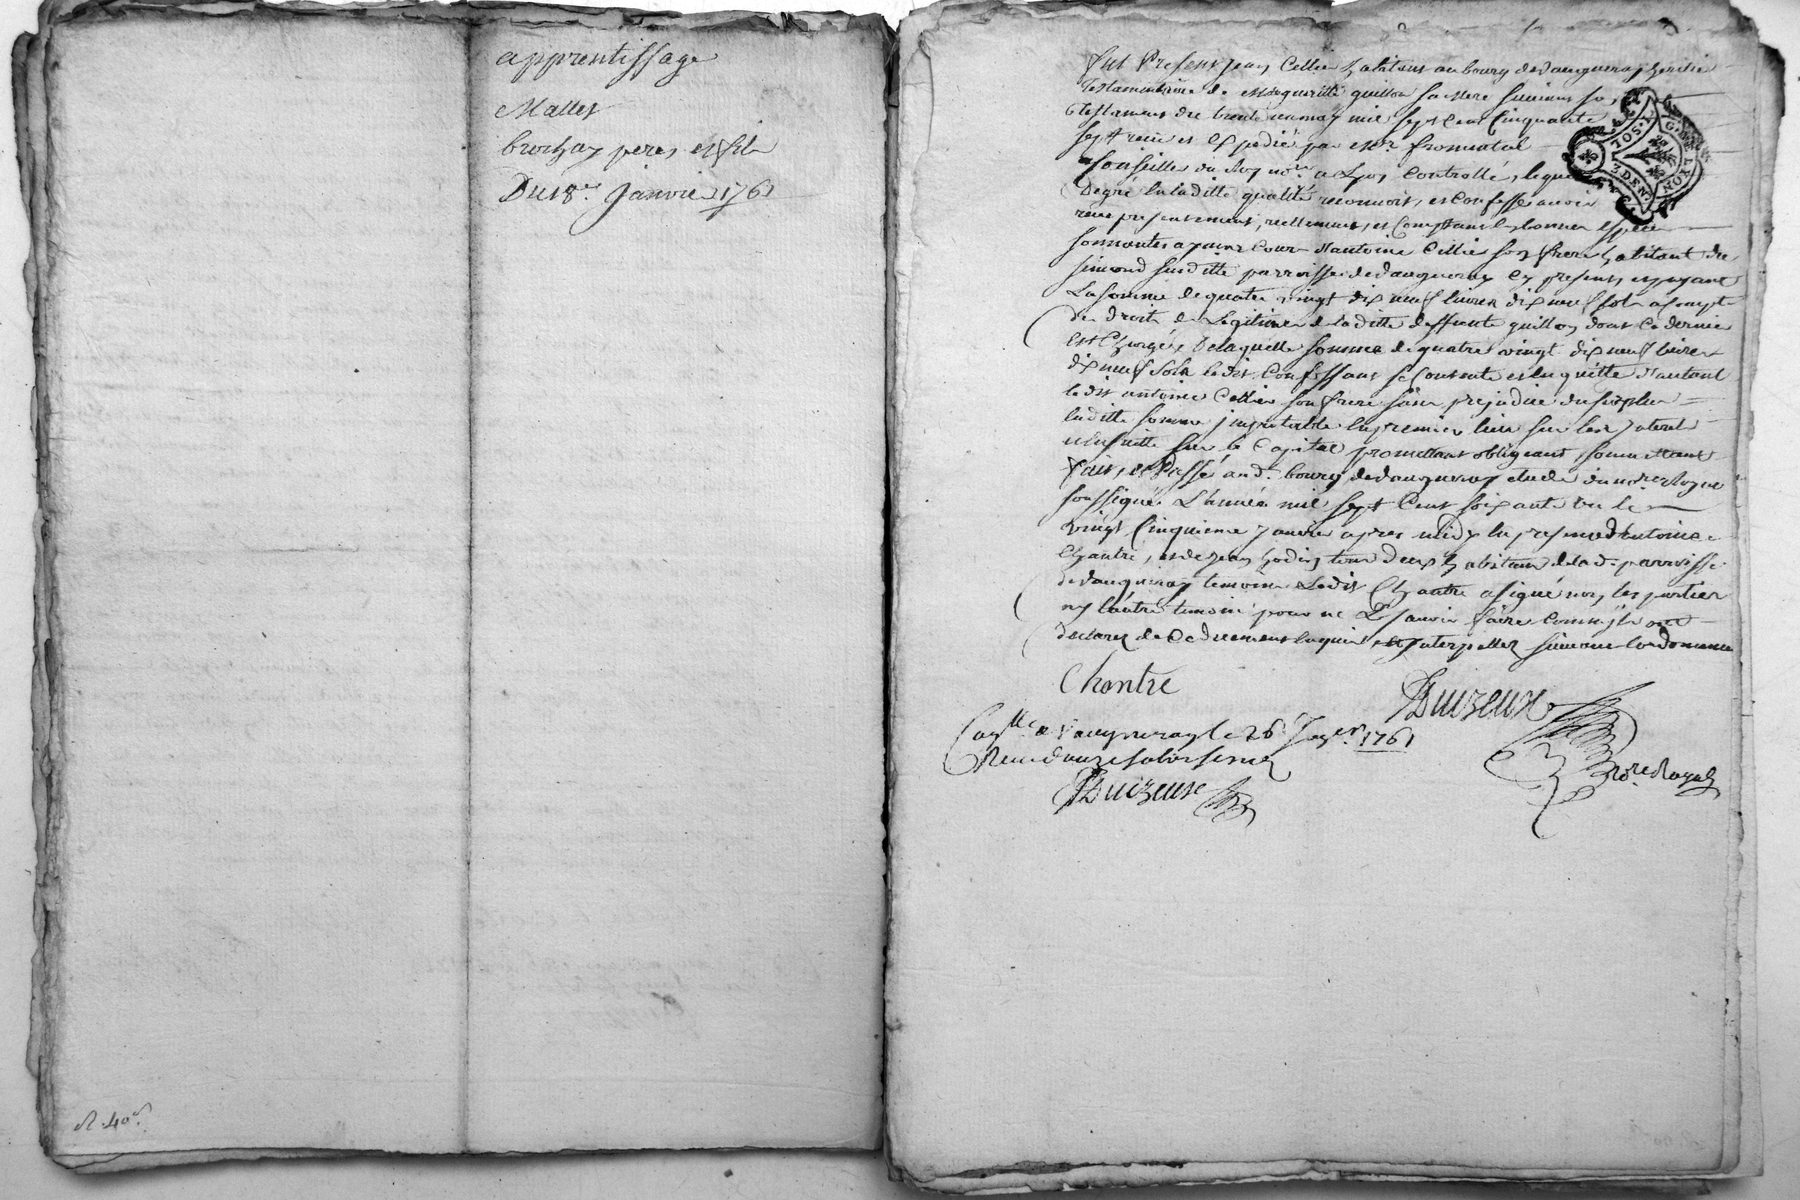 apprentissage
Mallet
brochay pere, et fils
Du 18e. janvier 1761
R. 40s.
fut Present jean Cellier habitant au bourg de vaugneray heritier
testamentaire de Margueritte guillon sa Mere suivant son
testament du trente un may mil sept cent Cinquante
sept reçu et Expedié par Me. fromental
Conseiller du Roy nore. a Lyon Controllé, lequel
De gré en laditte qualité reconnoit, et Confesse avoir
reçu presentement, reellement, et Comptant En bonnes espece
sonnantes ayant Cour d'antoine Cellier son frere habitant du
simond susditte parroisse de vaugneray Cy present, et payant
La somme de quatre vingt dix neuf livres dix neuf sols a Compte
des droits de Legitime de laditte deffunte guillon dont Ce dernier
est Chargé, De laquelle somme de quatre vingt dix neuf livres
dix neuf sols ledit Confessant se Contente et en quitte d'autant
ledit antoine Cellier son frere sans prejudice du surplus
laditte somme imputable En premier lieu sur les Interets
et Ensuitte sur le Capital promettant obligeant, soumettant
fait, et Passé aud. bourg de vaugneray etude du nore. Royal
soussigné L'année mil sept Cent soixante un le
vingt Cinquieme janvier apres midy En presence d'antoine
Chantre, et de jean godin tous deux habitant de lad. parroisse
de vaugneray temoins Ledit Chantre a signé non les parties
ny l'autre temoin pour ne Le savoir faire Comme ils ont
declarez de Ce duement Enquis, et Interpellez suivant Lordonnance
Chantre
Buizeux
nore. Royal
Conllé. a Vaugneray le 26 Janver. 1761
Reçu douze sols six deniers
Buizeux